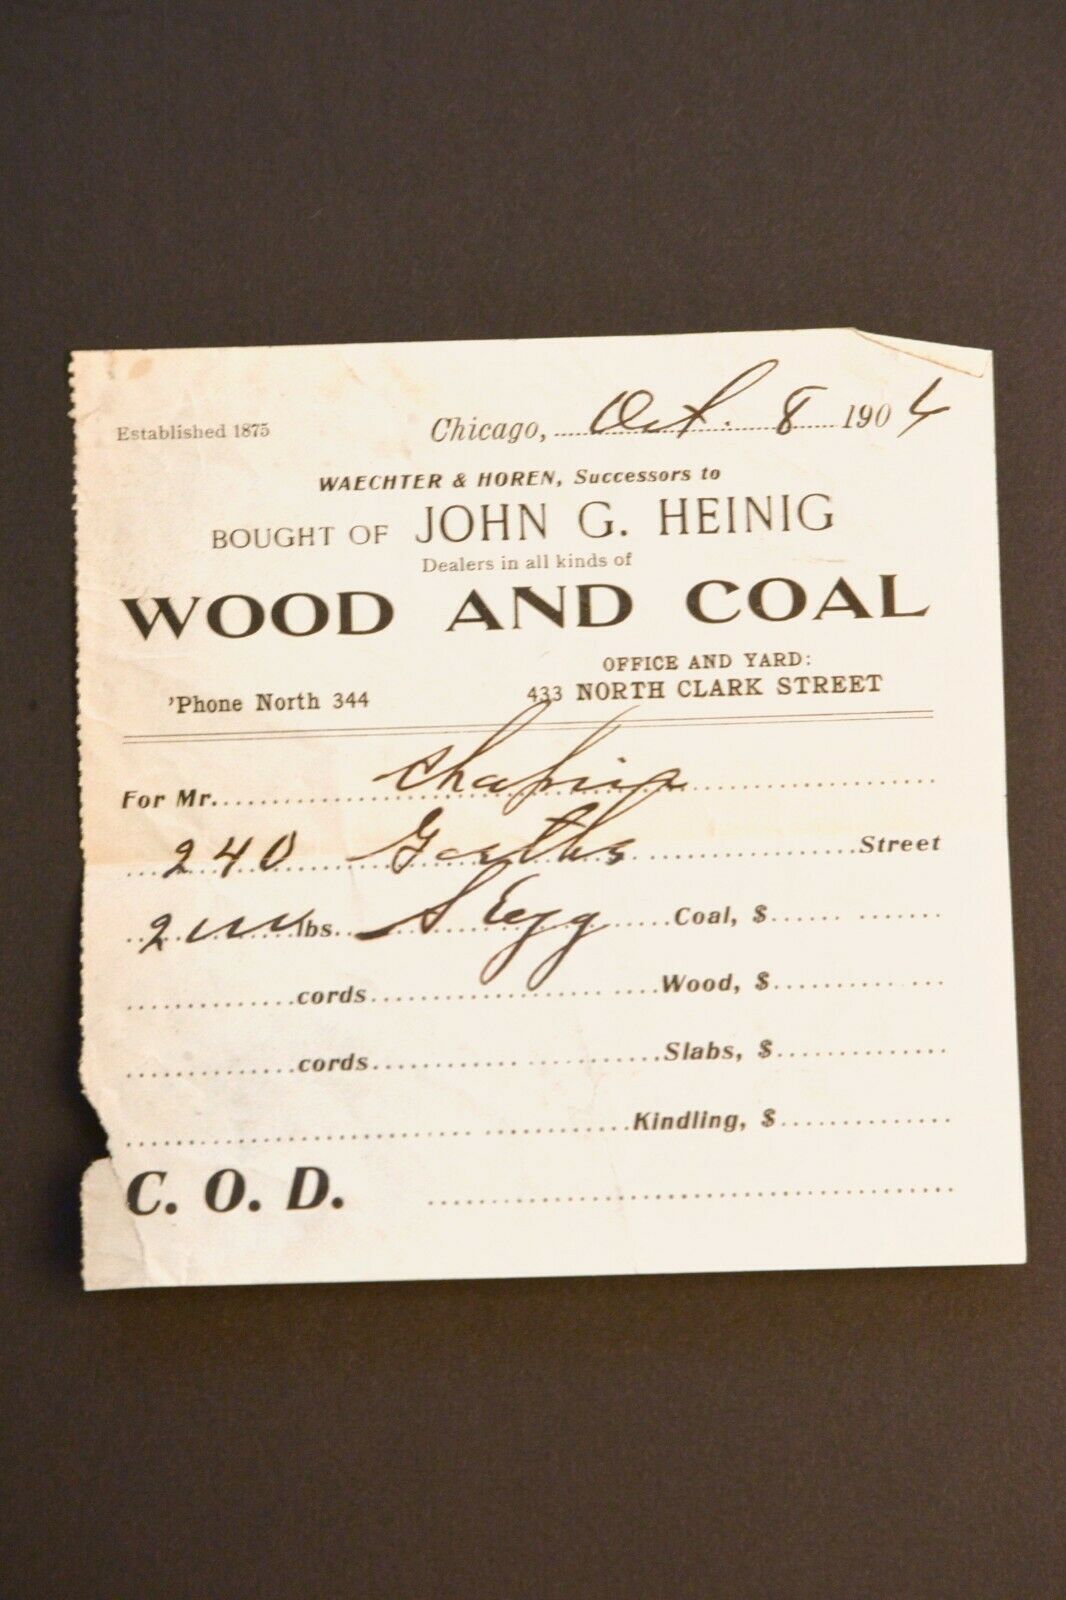 Established 1875
Chicago, Oct. 8 1904
WAECHTER & HOREN, Successors to
BOUGHT OF JOHN G. HEINIG
Dealers in all kinds of
WOOD AND COAL
OFFICE AND YARD:
'Phone North 344 433 NORTH CLARK STREET
For Mr. Chapin
240 Street
lbs. Egg Coal, $
cords Wood, $
cords Slabs, $
Kindling, $
C. O. D.